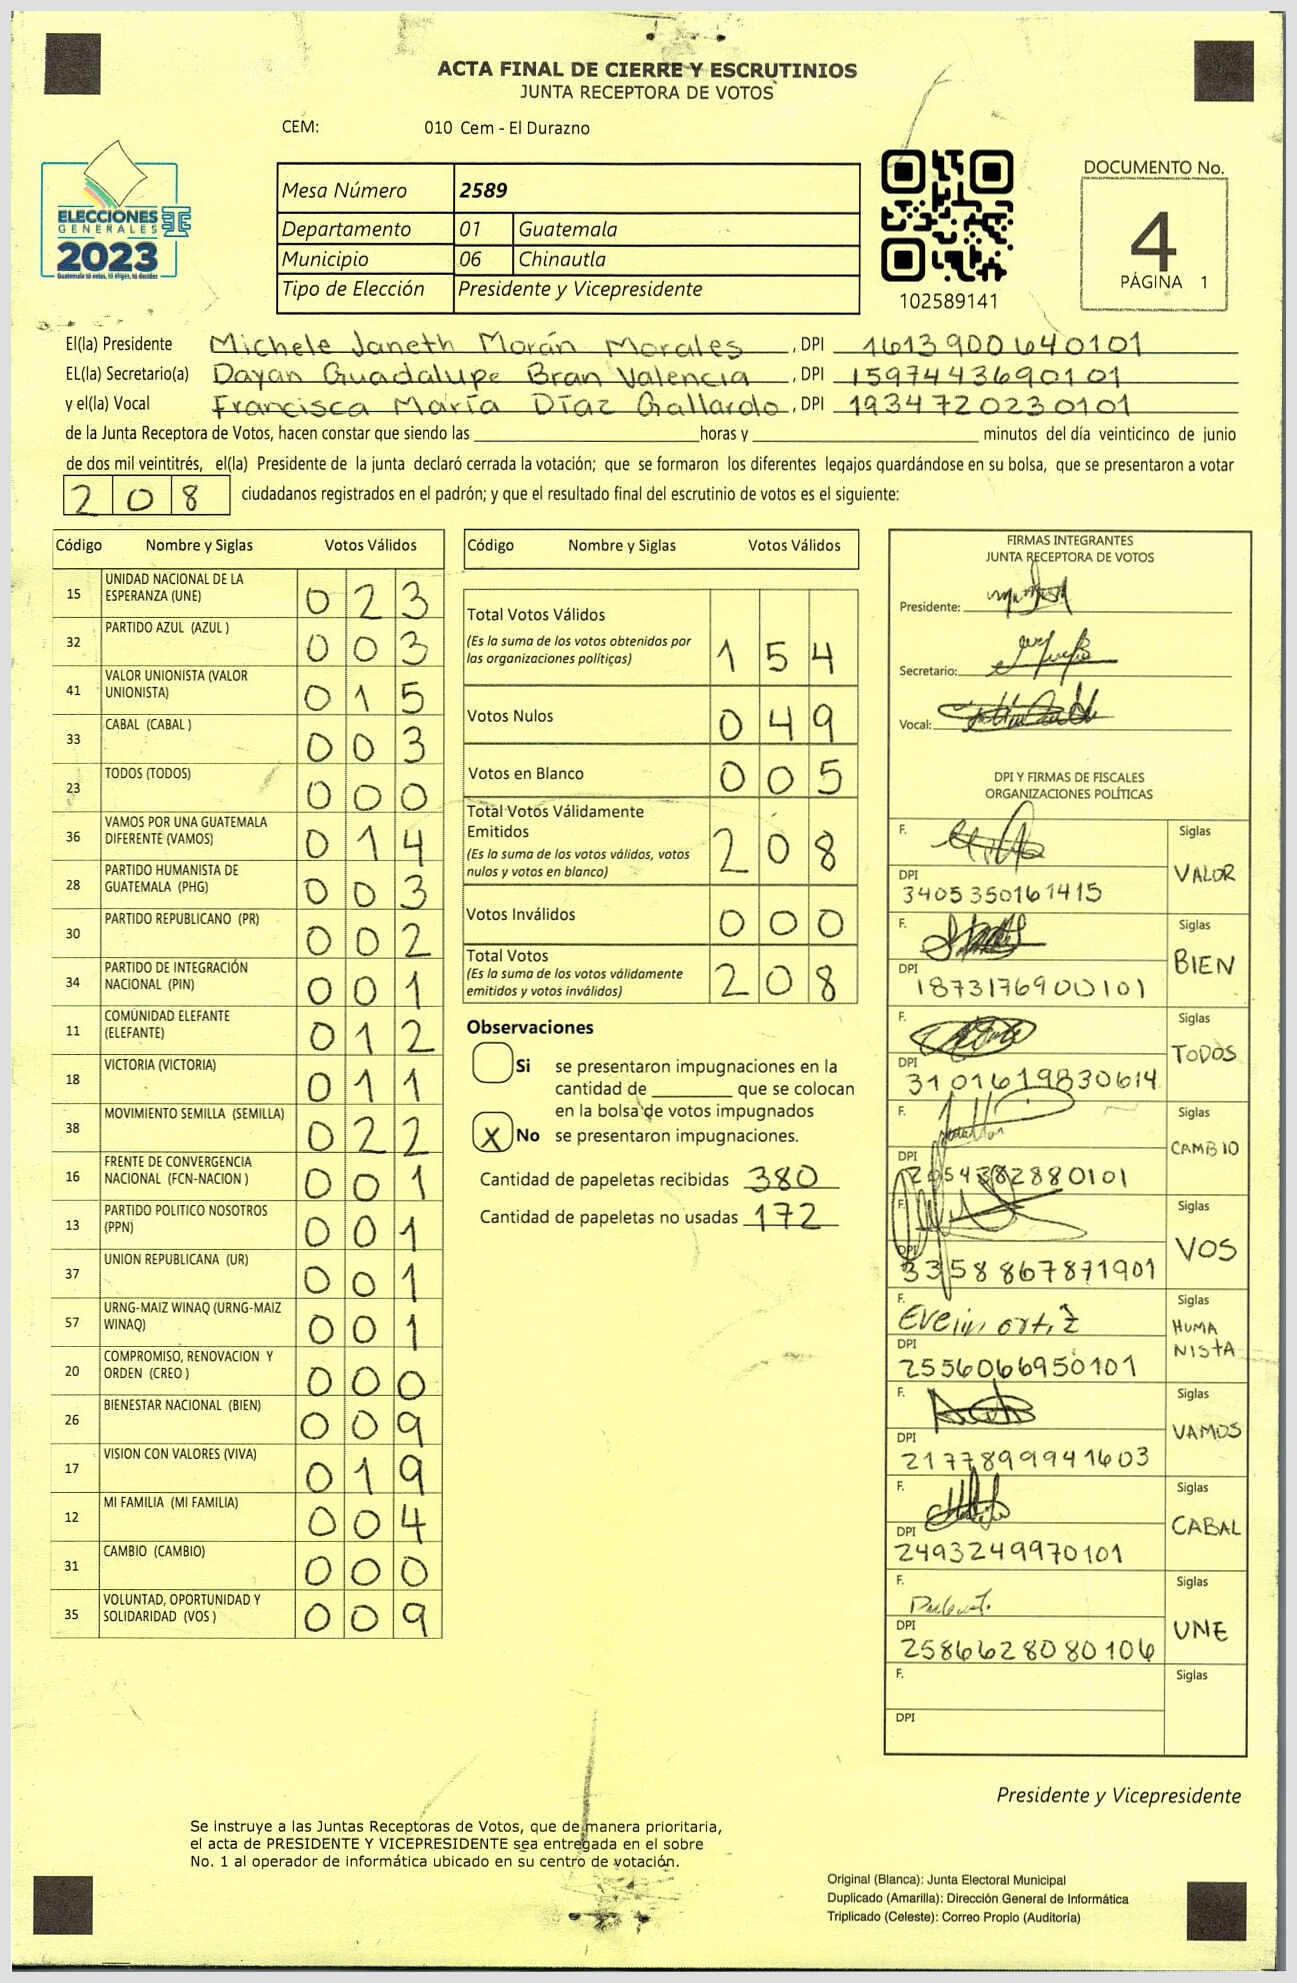 ACTA FINAL DE CIERRE Y ESCRUTINIOS
JUNTA RECEPTORA DE VOTOS
CEM: 010 Cem - El Durazno
ELECCIONES
GENERALES
2023
Guatemala tú votas, tú eliges, tú decides
Mesa Número 2589
Departamento 01 Guatemala
Municipio 06 Chinautla
Tipo de Elección Presidente y Vicepresidente
102589141
DOCUMENTO No.
4
PÁGINA 1
El(la) Presidente Michele Janeth Morán Morales, DPI 1613900640101
EL(la) Secretario(a) Dayan Guadalupe Bran Valencia, DPI 1597443690101
y el(la) Vocal Francisca María Díaz Gallardo, DPI 1934720230101
de la Junta Receptora de Votos, hacen constar que siendo las horas y minutos del día veinticinco de junio
de dos mil veintitrés, el(la) Presidente de la junta declaró cerrada la votación; que se formaron los diferentes legajos guardándose en su bolsa, que se presentaron a votar
208 ciudadanos registrados en el padrón; y que el resultado final del escrutinio de votos es el siguiente:
Código Nombre y Siglas Votos Válidos
15 UNIDAD NACIONAL DE LA ESPERANZA (UNE) 023
32 PARTIDO AZUL (AZUL ) 003
41 VALOR UNIONISTA (VALOR UNIONISTA) 015
33 CABAL (CABAL ) 003
23 TODOS (TODOS) 000
36 VAMOS POR UNA GUATEMALA DIFERENTE (VAMOS) 014
28 PARTIDO HUMANISTA DE GUATEMALA (PHG) 003
30 PARTIDO REPUBLICANO (PR) 002
34 PARTIDO DE INTEGRACIÓN NACIONAL (PIN) 001
11 COMUNIDAD ELEFANTE (ELEFANTE) 012
18 VICTORIA (VICTORIA) 011
38 MOVIMIENTO SEMILLA (SEMILLA) 022
16 FRENTE DE CONVERGENCIA NACIONAL (FCN-NACION ) 001
13 PARTIDO POLITICO NOSOTROS (PPN) 001
37 UNION REPUBLICANA (UR) 001
57 URNG-MAIZ WINAQ (URNG-MAIZ WINAQ) 001
20 COMPROMISO, RENOVACION Y ORDEN (CREO ) 000
26 BIENESTAR NACIONAL (BIEN) 009
17 VISION CON VALORES (VIVA) 019
12 MI FAMILIA (MI FAMILIA) 004
31 CAMBIO (CAMBIO) 000
35 VOLUNTAD, OPORTUNIDAD Y SOLIDARIDAD (VOS ) 009
Código Nombre y Siglas Votos Válidos
Total Votos Válidos 154
(Es la suma de los votos obtenidos por
las organizaciones políticas)
Votos Nulos 049
Votos en Blanco 005
Total Votos Válidamente
Emitidos 208
(Es la suma de los votos válidos, votos
nulos y votos en blanco)
Votos Inválidos 000
Total Votos 208
(Es la suma de los votos válidamente
emitidos y votos inválidos)
Observaciones
Si se presentaron impugnaciones en la
cantidad de que se colocan
en la bolsa de votos impugnados
X No se presentaron impugnaciones.
Cantidad de papeletas recibidas 380
Cantidad de papeletas no usadas 172
FIRMAS INTEGRANTES
JUNTA RECEPTORA DE VOTOS
Presidente:
Secretario:
Vocal:
DPI Y FIRMAS DE FISCALES
ORGANIZACIONES POLÍTICAS
F. Siglas
VALOR
DPI
3405350161415
F. Siglas
BIEN
DPI
1873176900101
F. Siglas
TODOS
DPI
3101619830614
F. Siglas
CAMBIO
DPI
2054382880101
F. Siglas
VOS
DPI
3358867871901
F. Evelin ortiz Siglas
HUMA
NISTA
DPI
2556066950101
F. Siglas
VAMOS
DPI
2177899941603
F. Siglas
CABAL
DPI
2493249970101
F. Siglas
UNE
DPI
2586628080106
F. Siglas
DPI
Presidente y Vicepresidente
Se instruye a las Juntas Receptoras de Votos, que de manera prioritaria,
el acta de PRESIDENTE Y VICEPRESIDENTE sea entregada en el sobre
No. 1 al operador de informática ubicado en su centro de votación.
Original (Blanca): Junta Electoral Municipal
Duplicado (Amarilla): Dirección General de Informática
Triplicado (Celeste): Correo Propio (Auditoría)